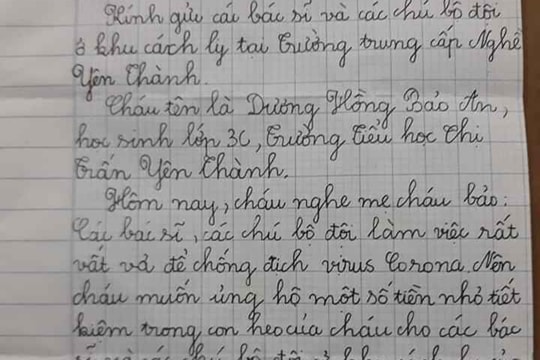 Kính gửi cái bác sĩ và các chú bộ đội
ở khu cách ly tại Trường trung cấp Nghề
Yên Thành.
Cháu tên là Dương Hồng Bảo An,
học sinh lớp 3C, Trường Tiểu học Thị
Trấn Yên Thành.
Hôm nay, cháu nghe mẹ cháu bảo:
Các bác sĩ, các chú bộ đội làm việc rất
vất vả để chống dịch virus Corona. Nên
cháu muốn ủng hộ một số tiền nhỏ tiết
kiệm trong con heo của cháu cho các bác
sĩ và các chú bộ đội ở khu cách ly